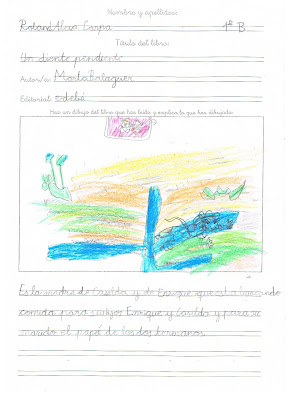 Nombre y apellidos:
Roland Alias Carpa 1º B
Título del libro:
Un diente pendiente
Autor/a: Marta Balaguer
Editorial: edebé
Haz un dibujo del libro que has leído y explica lo que has dibujado:
Es la madre de Casilda y de Enrique que está buscando
comida para sus hijos Enrique y Casilda y para su
marido el papá de los dos hermanos.